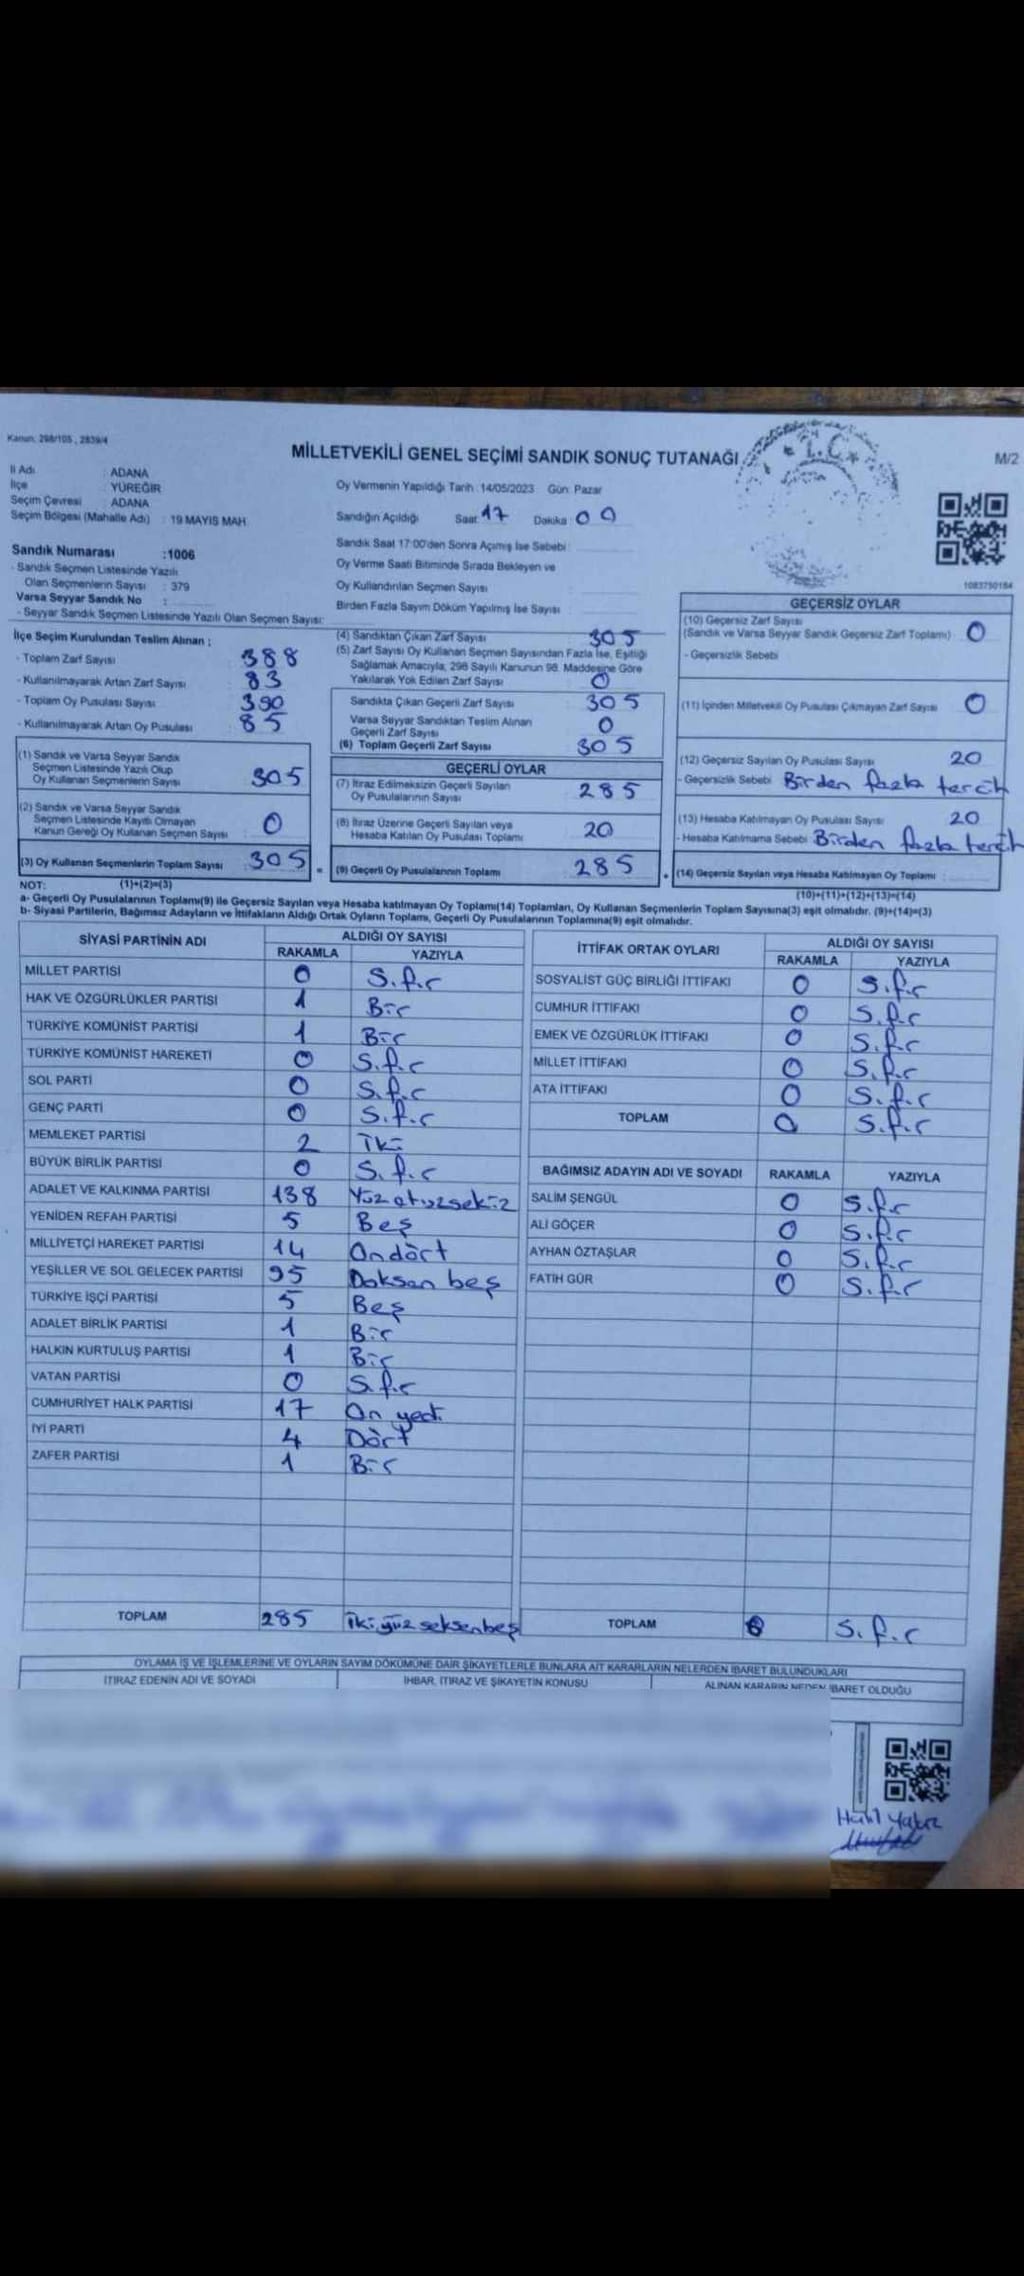 Kanun, 298/105 , 2839/4
MİLLETVEKİLİ GENEL SEÇİMİ SANDIK SONUÇ TUTANAĞI
T.C.
M/2
İl Adı : ADANA
İlçe : YÜREĞİR
Seçim Çevresi : ADANA
Seçim Bölgesi (Mahalle Adı) : 19 MAYIS MAH.
Sandık Numarası :1006
- Sandık Seçmen Listesinde Yazılı
Olan Seçmenlerin Sayısı : 379
Varsa Seyyar Sandık No :
- Seyyar Sandık Seçmen Listesinde Yazılı Olan Seçmen Sayısı:
Oy Vermenin Yapıldığı Tarih :14/05/2023 Gün: Pazar
Sandığın Açıldığı Saat: 17 Dakika: 00
Sandık Saat 17:00'den Sonra Açımış İse Sebebi :
Oy Verme Saati Bitiminde Sırada Bekleyen ve
Oy Kullandırılan Seçmen Sayısı :
Birden Fazla Sayım Döküm Yapılmış İse Sayısı :
1083750184
İlçe Seçim Kurulundan Teslim Alınan ;
- Toplam Zarf Sayısı : 388
- Kullanılmayarak Artan Zarf Sayısı : 83
- Toplam Oy Pusulası Sayısı : 390
- Kullanılmayarak Artan Oy Pusulası : 85
(1) Sandık ve Varsa Seyyar Sandık
Seçmen Listesinde Yazılı Olup
Oy Kullanan Seçmenlerin Sayısı : 305
(2) Sandık ve Varsa Seyyar Sandık
Seçmen Listesinde Kayıtlı Olmayan
Kanun Gereği Oy Kullanan Seçmen Sayısı : 0
(3) Oy Kullanan Seçmenlerin Toplam Sayısı : 305
(4) Sandıktan Çıkan Zarf Sayısı : 305
(5) Zarf Sayısı Oy Kullanan Seçmen Sayısından Fazla İse, Eşitliği
Sağlamak Amacıyla, 298 Sayılı Kanunun 98. Maddesine Göre
Yakılarak Yok Edilen Zarf Sayısı : 0
Sandıkta Çıkan Geçerli Zarf Sayısı : 305
Varsa Seyyar Sandıktan Teslim Alınan
Geçerli Zarf Sayısı : 0
(6) Toplam Geçerli Zarf Sayısı : 305
GEÇERLİ OYLAR
(7) İtiraz Edilmeksizin Geçerli Sayılan
Oy Pusulalarının Sayısı : 285
(8) İtiraz Üzerine Geçerli Sayılan veya
Hesaba Katılan Oy Pusulası Toplamı : 20
(9) Geçerli Oy Pusulalarının Toplamı : 285
GEÇERSİZ OYLAR
(10) Geçersiz Zarf Sayısı
(Sandık ve Varsa Seyyar Sandık Geçersiz Zarf Toplamı) : 0
- Geçersizlik Sebebi
(11) İçinden Milletvekili Oy Pusulası Çıkmayan Zarf Sayısı : 0
(12) Geçersiz Sayılan Oy Pusulası Sayısı : 20
- Geçersizlik Sebebi Birden fazla tercih
(13) Hesaba Katılmayan Oy Pusulası Sayısı : 20
- Hesaba Katılmama Sebebi Birden fazla tercih
(14) Geçersiz Sayılan veya Hesaba Katılmayan Oy Toplamı :
NOT: (1)+(2)=(3)
(10)+(11)+(12)+(13)=(14)
a- Geçerli Oy Pusulalarının Toplamı(9) ile Geçersiz Sayılan veya Hesaba katılmayan Oy Toplamı(14) Toplamları, Oy Kullanan Seçmenlerin Toplam Sayısına(3) eşit olmalıdır. (9)+(14)=(3)
b- Siyasi Partilerin, Bağımsız Adayların ve İttifakların Aldığı Ortak Oyların Toplamı, Geçerli Oy Pusulalarının Toplamına(9) eşit olmalıdır.
SİYASİ PARTİNİN ADI ALDIĞI OY SAYISI
RAKAMLA YAZIYLA
MİLLET PARTİSİ 0 Sıfır
HAK VE ÖZGÜRLÜKLER PARTİSİ 1 Bir
TÜRKİYE KOMÜNİST PARTİSİ 1 Bir
TÜRKİYE KOMÜNİST HAREKETİ 0 Sıfır
SOL PARTİ 0 Sıfır
GENÇ PARTİ 0 Sıfır
MEMLEKET PARTİSİ 2 İki
BÜYÜK BİRLİK PARTİSİ 0 Sıfır
ADALET VE KALKINMA PARTİSİ 138 Yüz otuzsekiz
YENİDEN REFAH PARTİSİ 5 Beş
MİLLİYETÇİ HAREKET PARTİSİ 14 Ondört
YEŞİLLER VE SOL GELECEK PARTİSİ 95 Doksan beş
TÜRKİYE İŞÇİ PARTİSİ 5 Beş
ADALET BİRLİK PARTİSİ 1 Bir
HALKIN KURTULUŞ PARTİSİ 1 Bir
VATAN PARTİSİ 0 Sıfır
CUMHURİYET HALK PARTİSİ 17 On yedi
İYİ PARTİ 4 Dört
ZAFER PARTİSİ 1 Bir
TOPLAM 285 İkiyüz seksenbeş
İTTİFAK ORTAK OYLARI ALDIĞI OY SAYISI
RAKAMLA YAZIYLA
SOSYALİST GÜÇ BİRLİĞİ İTTİFAKI 0 Sıfır
CUMHUR İTTİFAKI 0 Sıfır
EMEK VE ÖZGÜRLÜK İTTİFAKI 0 Sıfır
MİLLET İTTİFAKI 0 Sıfır
ATA İTTİFAKI 0 Sıfır
TOPLAM 0 Sıfır
BAĞIMSIZ ADAYIN ADI VE SOYADI RAKAMLA YAZIYLA
SALİM ŞENGÜL 0 Sıfır
ALİ GÖÇER 0 Sıfır
AYHAN ÖZTAŞLAR 0 Sıfır
FATİH GÜR 0 Sıfır
TOPLAM 0 Sıfır
OYLAMA İŞ VE İŞLEMLERİNE VE OYLARIN SAYIM DÖKÜMÜNE DAİR ŞİKAYETLERLE BUNLARA AİT KARARLARIN NELERDEN İBARET BULUNDUKLARI
İTİRAZ EDENİN ADI VE SOYADI İHBAR, İTİRAZ VE ŞİKAYETİN KONUSU ALINAN KARARIN NEDEN İBARET OLDUĞU